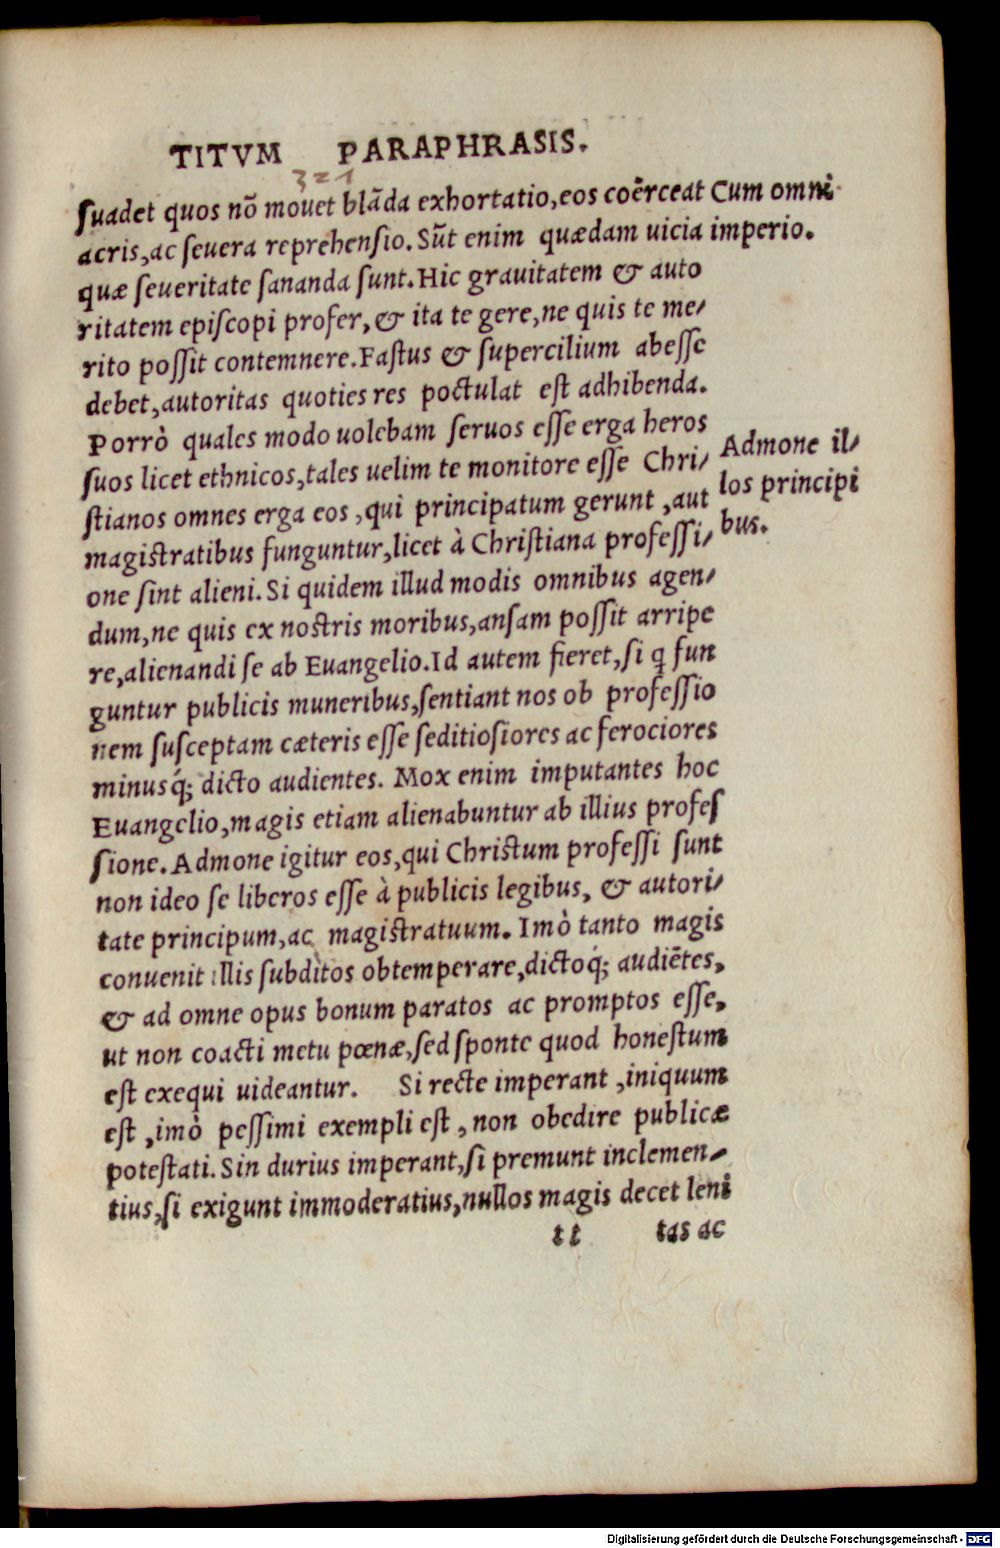 TITVM PARAPHRASIS.
321
suadet quos nō mouet blāda exhortatio, eos coërceat
Cum omni
acris, ac seuera reprehensio. Sūt enim quædam uicia
imperio.
quæ seueritate sananda sunt. Hic grauitatem & auto
ritatem episcopi profer, & ita te gere, ne quis te me/
rito possit contemnere. Fastus & supercilium abesse
debet, autoritas quoties res poctulat est adhibenda.
Porrò quales modo uolebam seruos esse erga heros
suos licet ethnicos, tales uelim te monitore esse Chri/
Admone il/
stianos omnes erga eos, qui principatum gerunt, aut
los principi
magistratibus funguntur, licet à Christiana professi/
bus.
one sint alieni. Si quidem illud modis omnibus agen/
dum, ne quis ex nostris moribus, ansam possit arripe
re, alienandi se ab Euangelio. Id autem fieret, si q̨ fun
guntur publicis muneribus, sentiant nos ob professio
nem susceptam cæteris esse seditiosiores ac ferociores
minusq́; dicto audientes. Mox enim imputantes hoc
Euangelio, magis etiam alienabuntur ab illius profes
sione. Admone igitur eos, qui Christum professi sunt
non ideo se liberos esse à publicis legibus, & autori/
tate principum, ac magistratuum. Imò tanto magis
conuenit illis subditos obtemperare, dictoq́; audiētes,
& ad omne opus bonum paratos ac promptos esse,
ut non coacti metu pœnæ, sed sponte quod honestum
est exequi uideantur. Si recte imperant, iniquum
est, imò pessimi exempli est, non obedire publicæ
potestati. Sin durius imperant, si premunt inclemen/
tius, si exigunt immoderatius, nullos magis decet leni
tt tas ac
Digitalisierung gefördert durch die Deutsche Forschungsgemeinschaft - DFG